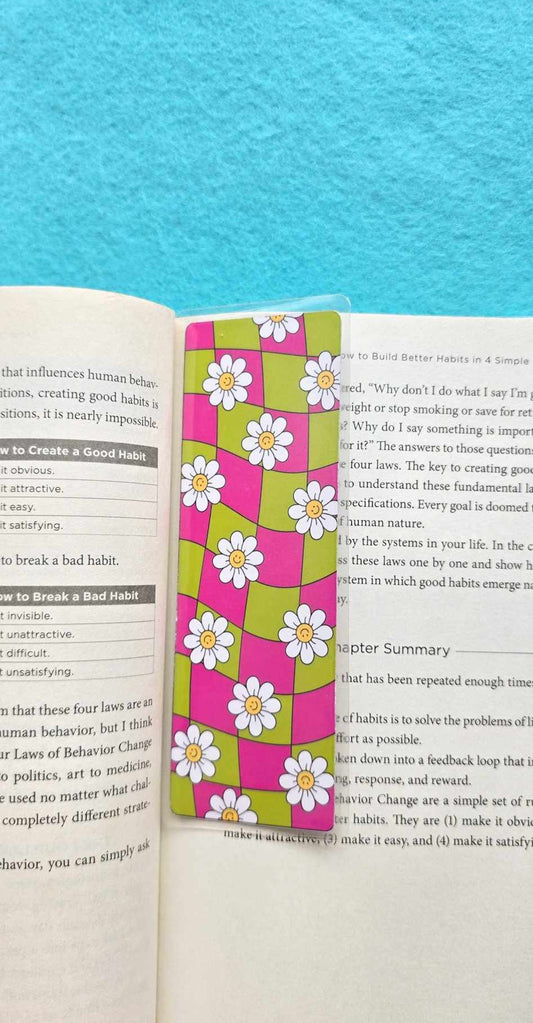 that influences human behav-
itions, creating good habits is
sitions, it is nearly impossible.
w to Create a Good Habit
it obvious.
it attractive.
it easy.
it satisfying.
to break a bad habit.
ow to Break a Bad Habit
t invisible.
t unattractive.
t difficult.
t unsatisfying.
m that these four laws are an
uman behavior, but I think
ur Laws of Behavior Change
to politics, art to medicine,
e used no matter what chal-
completely different strate-
ehavior, you can simply ask
ow to Build Better Habits in 4 Simple
ered, “Why don’t I do what I say I’m g
weight or stop smoking or save for ret
s? Why do I say something is import
for it?” The answers to those question
e four laws. The key to creating good
to understand these fundamental la
specifications. Every goal is doomed t
f human nature.
l by the systems in your life. In the c
ss these laws one by one and show h
ystem in which good habits emerge na
ay.
hapter Summary
that has been repeated enough time
e of habits is to solve the problems of li
ffort as possible.
ken down into a feedback loop that i
ng, response, and reward.
ehavior Change are a simple set of ru
ter habits. They are (1) make it obvio
make it attractive, (3) make it easy, and (4) make it satisfyi